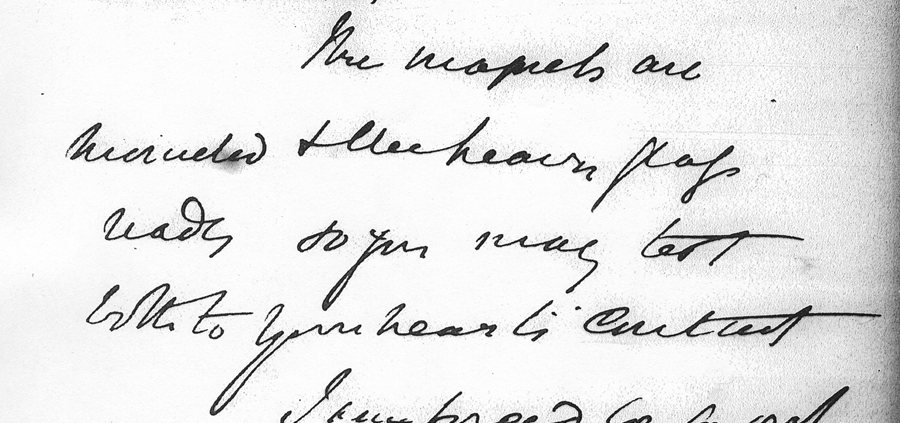 The magnets are
mounted & the heavy glass
ready so you may test
both to your heart's content